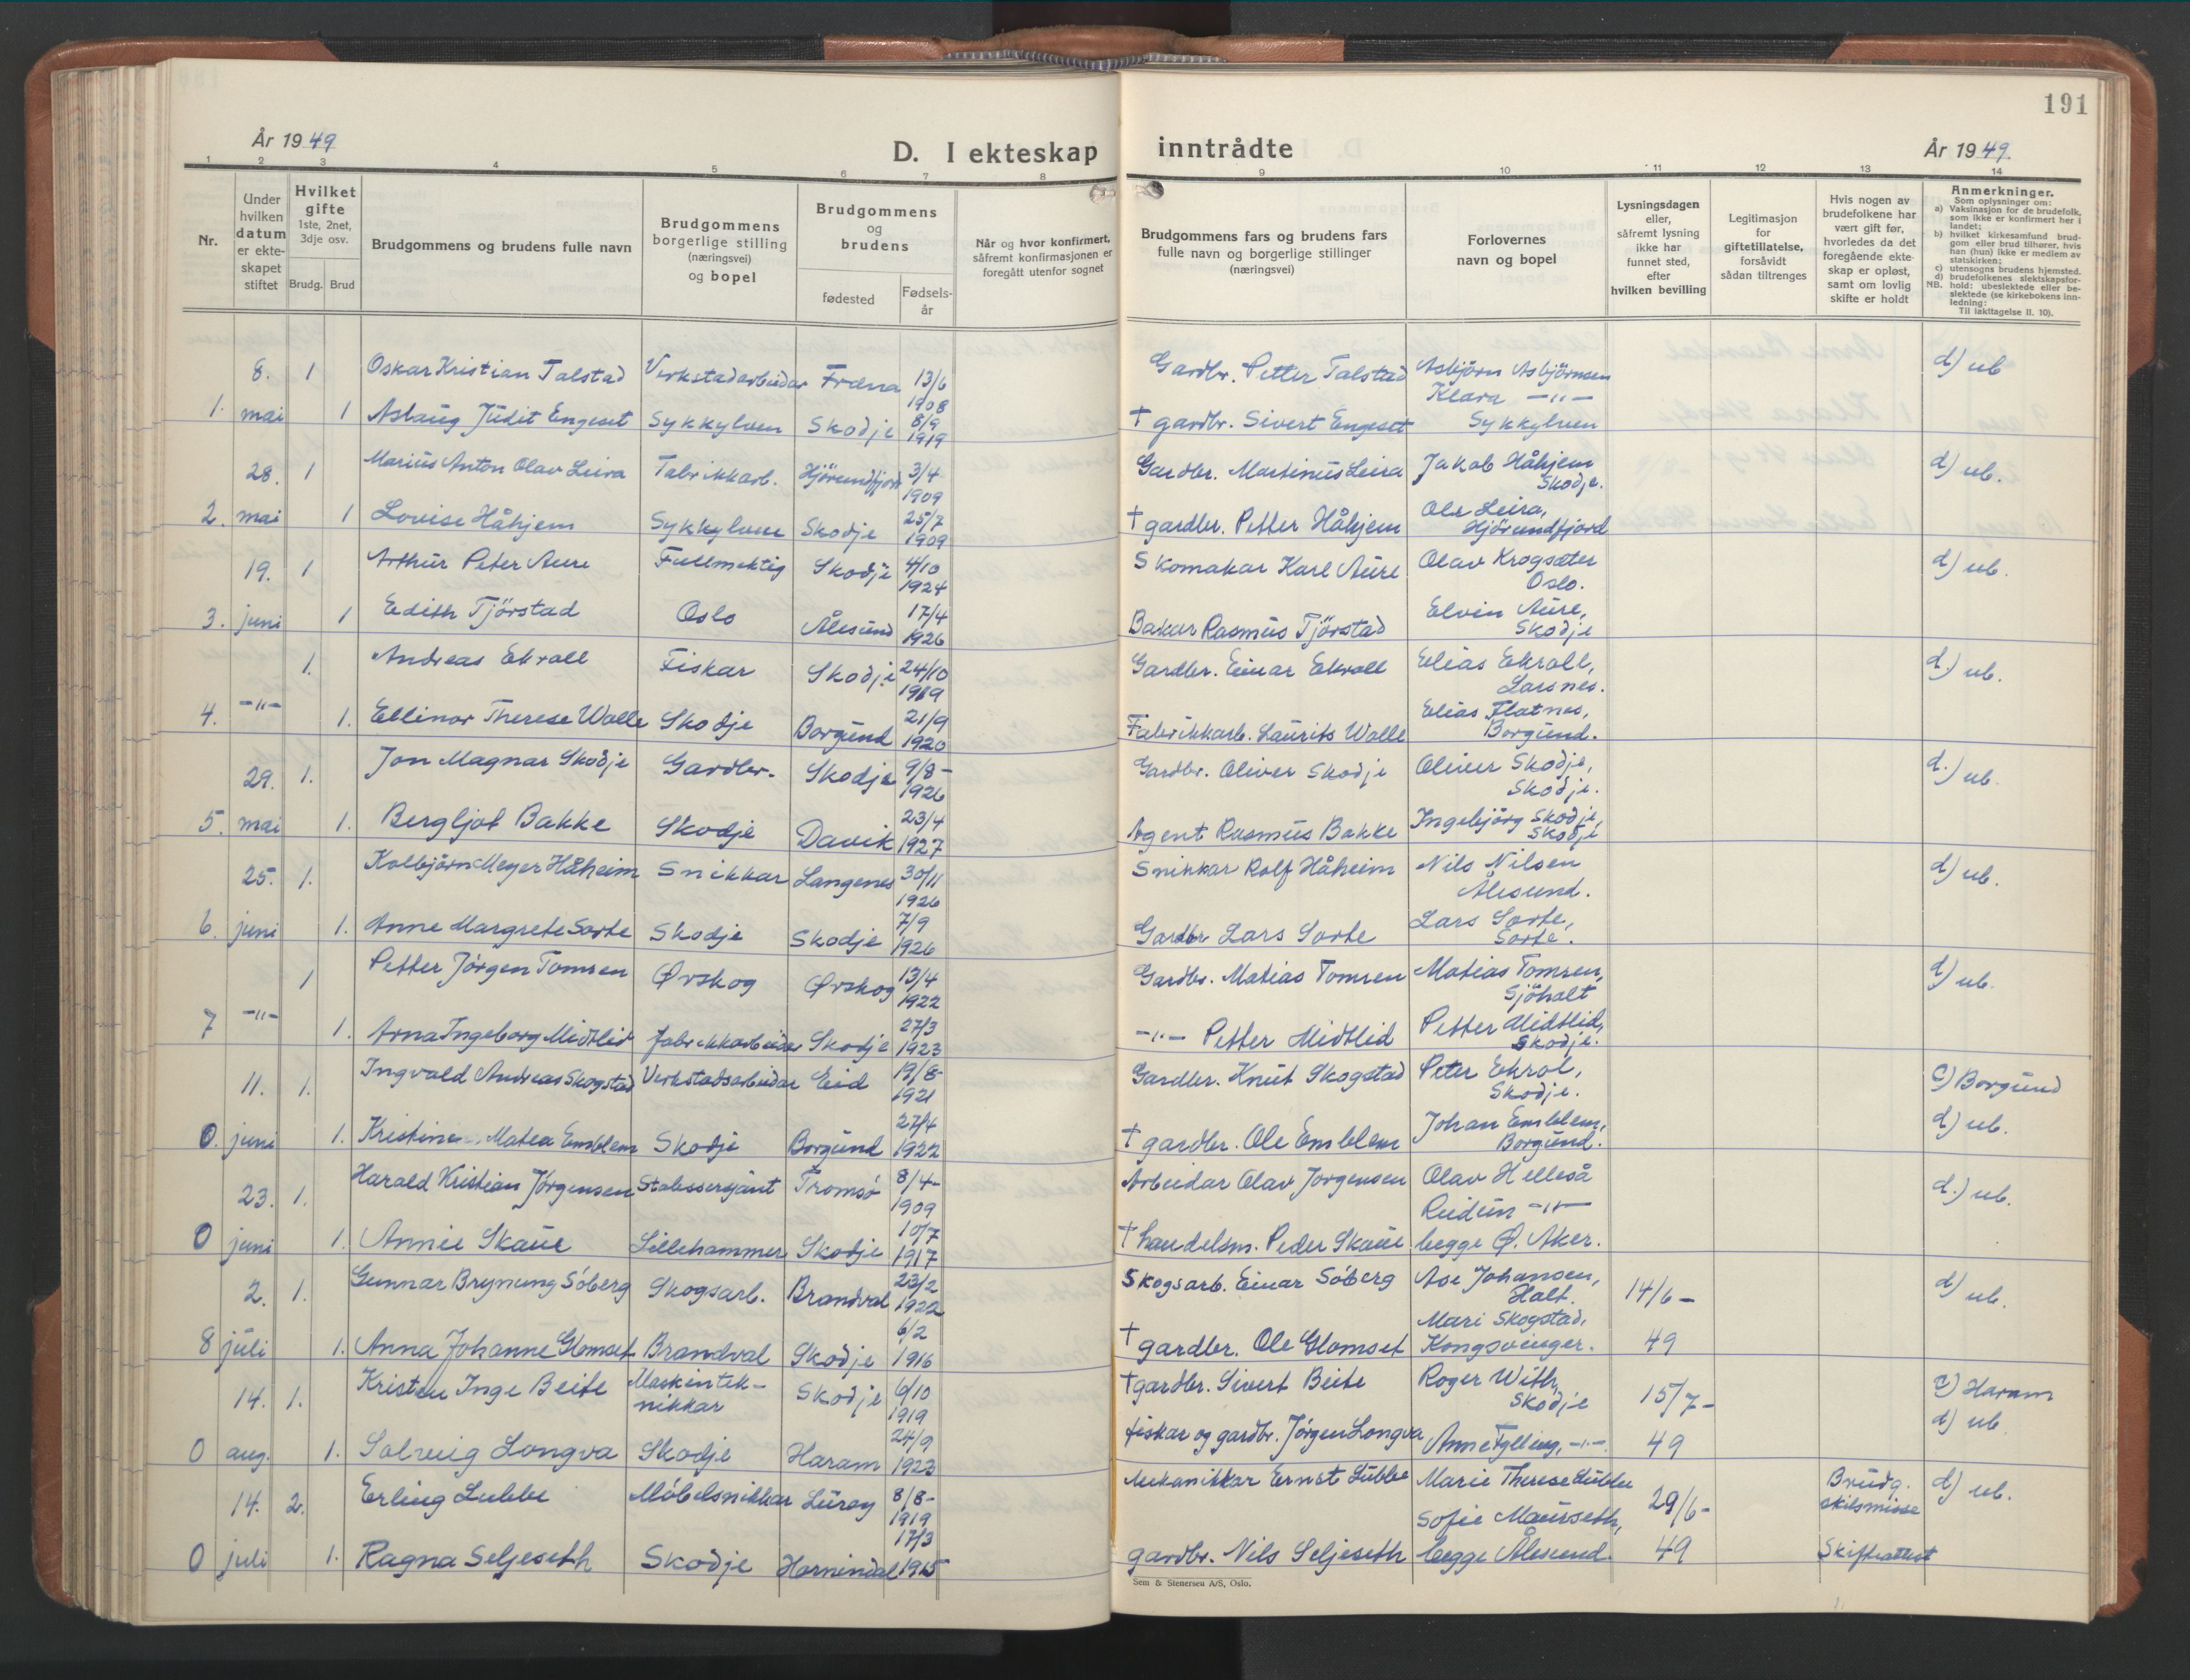 191
År 1949
D. I ekteskap inntrådte
År 1949.
1 2 3 4 5 6 7 8 9 10 11 12 13 14
Nr.
Under hvilken datum er ekteskapet stiftet
Hvilket gifte 1ste, 2net, 3dje osv.
Brudg. Brud
Brudgommens og brudens fulle navn
Brudgommens borgerlige stilling (næringsvei) og bopel
Brudgommens og brudens
fødested
Fødsels-år
Når og hvor konfirmert, såfremt konfirmasjonen er foregått utenfor sognet
Brudgommens fars og brudens fars fulle navn og borgerlige stillinger (næringsvei)
Forlovernes navn og bopel
Lysningsdagen eller, såfremt lysning ikke har funnet sted, efter hvilken bevilling
Legitimasjon for giftetillatelse, forsåvidt sådan tiltrenges
Hvis nogen av brudefolkene har vært gift før, hvorledes da det foregående ekteskap er opløst, samt om lovlig skifte er holdt
Anmerkninger.
Som oplysninger om:
a) Vaksinasjon for de brudefolk, som ikke er konfirmert her i landet;
b) hvilket kirkesamfund brudgom eller brud tilhører, hvis han (hun) ikke er medlem av statskirken;
c) utensogns brudens hjemsted.
d) brudefolkenes slektskapsforhold: ubeslektede eller beslektede (se kirkebokens innledning:
NB.
Til iakttagelse II. 10).
8. 1 Oskar Kristian Talstad Verkstadarbeidar Fræna 13/6 1908 Gardbr. Petter Talstad Asbjörn Asbjörnsen d) ub
Klara -"-
1. mai 1 Aslaug Judit Engeset Sykkylven Skodje 8/9 1919 † gardbr. Sivert Engeset Sykkylven
28. 1 Marius Anton Olav Leira Fabrikkarb. Hjörundfjord 3/4 1909 Gardbr. Martinus Leira Jakob Håhjem Skodje. d) ub.
2. mai 1 Lovise Håhjem Sykkylven Skodje 25/7 1909 † gardbr. Petter Håhjem Ole Leira, Hjörundfjord
19. 1 Arthur Peter Aure Fullmektig Skodje 4/10 1924 Skomakar Karl Aure Olav Krogsæter Oslo. d) ub.
3. juni 1 Edith Tjörstad Oslo Ålesund 17/4 1926 Bakar Rasmus Tjörstad Elvin Aure, Skodje
1. Andreas Ekroll Fiskar Skodje 24/10 1919 Gardbr. Einar Ekroll Elias Ekroll, Larsnes. d.) ub.
4. -"- 1. Ellinor Therese Walle Skodje Borgund 21/9 1920 Fabrikkarb. Laurits Walle Elias Flatnes, Borgund.
29. 1. Jon Magnar Skodje Gardbr. Skodje 9/8- 1926 Gardbr. Oliver Skodje Oliver Skodje, Skodje. d.) ub.
5. mai 1. Bergljot Bakke Skodje Davik 23/4 1927 Agent Rasmus Bakke Ingebjörg Skodje, Skodje
25. 1. Kolbjörn Meyer Håheim Snikkar Langenes 30/11 1926 Snikkar Rolf Håheim Nils Nilsen Ålesund. d) ub.
6. juni 1. Anne Margrete Sorte Skodje Skodje 7/9 1926 Gardbr Lars Sorte Lars Sorte, Sorte.
1 Petter Jörgen Tomren Ørskog Ørskog 13/4 1922 Gardbr. Matias Tomren Matias Tomren, Sjöholt d) ub.
7 -"- 1. Arna Ingeborg Midtlid fabrikkarbeidar Skodje 27/3 1923 -"- Petter Midtlid Petter Midtlid, Skodje.
11. 1. Ingvald Andreas Skogstad Verkstadsarbeidar Eid 19/8- 1921 Gardbr. Knut Skogstad Peter Ekrol, Skodje. c) Borgund
0. juni 1. Kristine Matea Emblem Skodje Borgund 27/4 1922 † gardbr. Ole Emblem Johan Emblem, Borgund. d) ub.
23. 1. Harald Kristian Jörgensen Stabssersjant Tromsö 8/4- 1909 Arbeidar Olav Jorgensen Olav Helleså d.) ub.
Reidun -"-
0 juni 1. Annie Skaue Lillehammer Skodje 10/7 1917 † handelsm. Peder Skaue begge Ø. Aker.
2. 1. Gunnar Brynung Söberg Skogsarb. Brandval 23/2 1922 Skogsarb. Einar Söberg Ase Johansen, Holt. 14/6- d) ub.
8 juli 1. Anna Johanne Glomset Brandval Skodje 6/2 1916 † gardbr. Ole Glomset Mari Skogstad, Kongsvinger. 49
14. 1. Kristen Inge Beite Maskintek-nikkar Skodje 6/10 1919 † gardbr. Sivert Beite Roger With, Skodje 15/7- c) Haram
0 aug. 1. Solveig Longva Skodje Haram 24/9 1923 fiskar og gardbr. Jörgen Longva Anne Fylling, -"-. 49 d) ub
14. 2. Erling Lubbe Möbelsnikkar Lurøy 8/8- 1919 Mekanikkar Ernst Lubbe Marie Therese Lubbe 29/6- Brudg. skilsmisse d) ub.
Sofie Maurseth,
0 juli 1. Ragna Seljeseth Skodje Hornindal 17/3 1915 gardbr. Nils Seljeseth begge Ålesund. 49 Skifteattest
Sem & Stenersen A/S, Oslo.